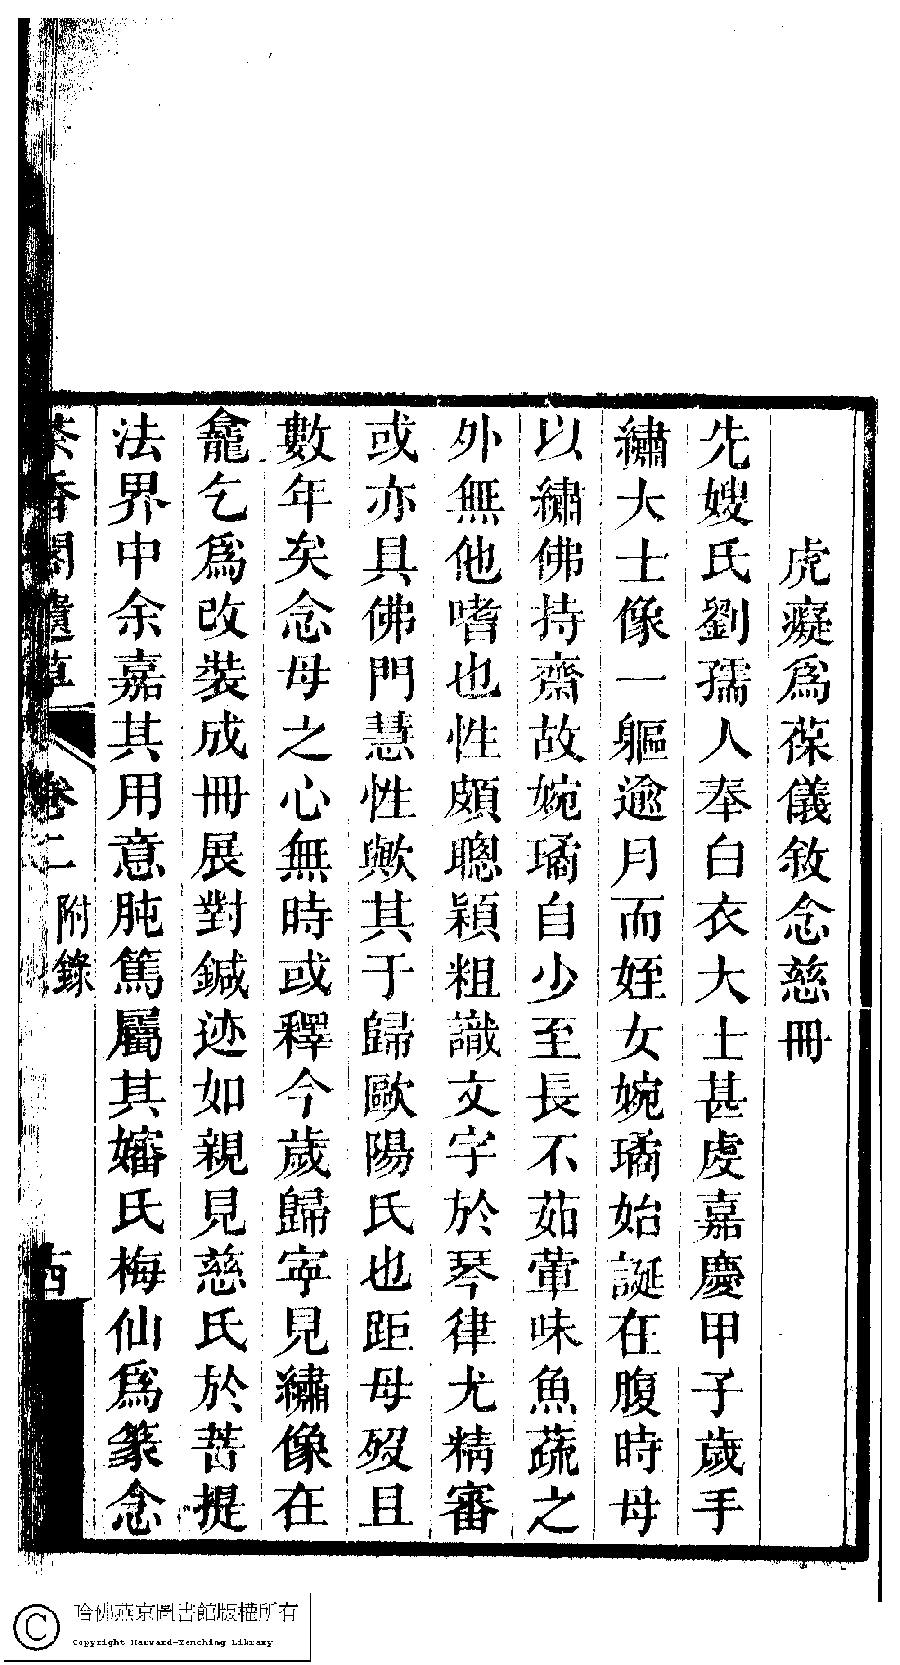 虎癡爲葆儀敘念慈冊
先嫂氏劉孺人奉白衣大士甚虔嘉慶甲子歲手
繡大士像一軀逾月而姪女婉璚始誕在腹時母
以繡佛持齋故婉璚自少至長不茹葷味魚蔬之
外無他嗜也性頗聰穎粗識文字於琴律尤精審
或亦具佛門慧性歟其于歸歐陽氏也距母歿且
數年矣念母之心無時或釋今歲歸寧見繡像在
龕乞爲改裝成冊展對鍼迹如親見慈氏於菩提
法界中余嘉其用意肫篤屬其嬸氏梅仙爲篆念
香閣遺草 卷二 附錄
哈佛燕京圖書館版權所有
Copyright Harvard-Yenching Library